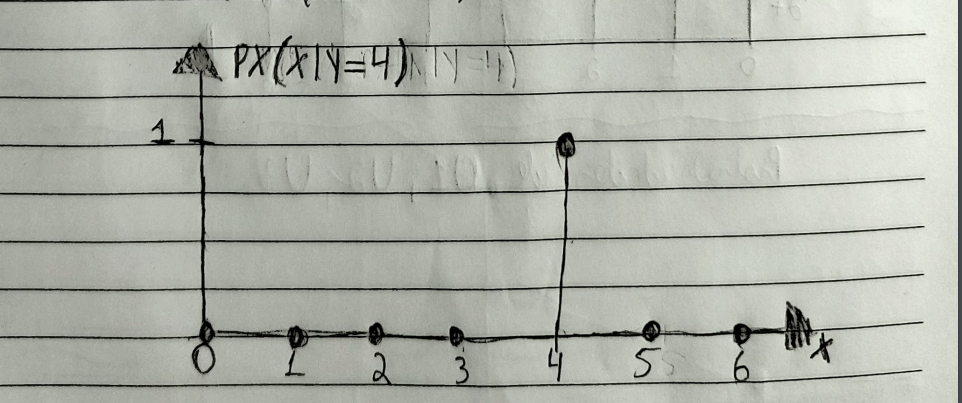 PX(X|Y=4)
1
0 1 2 3 4 5 6 x